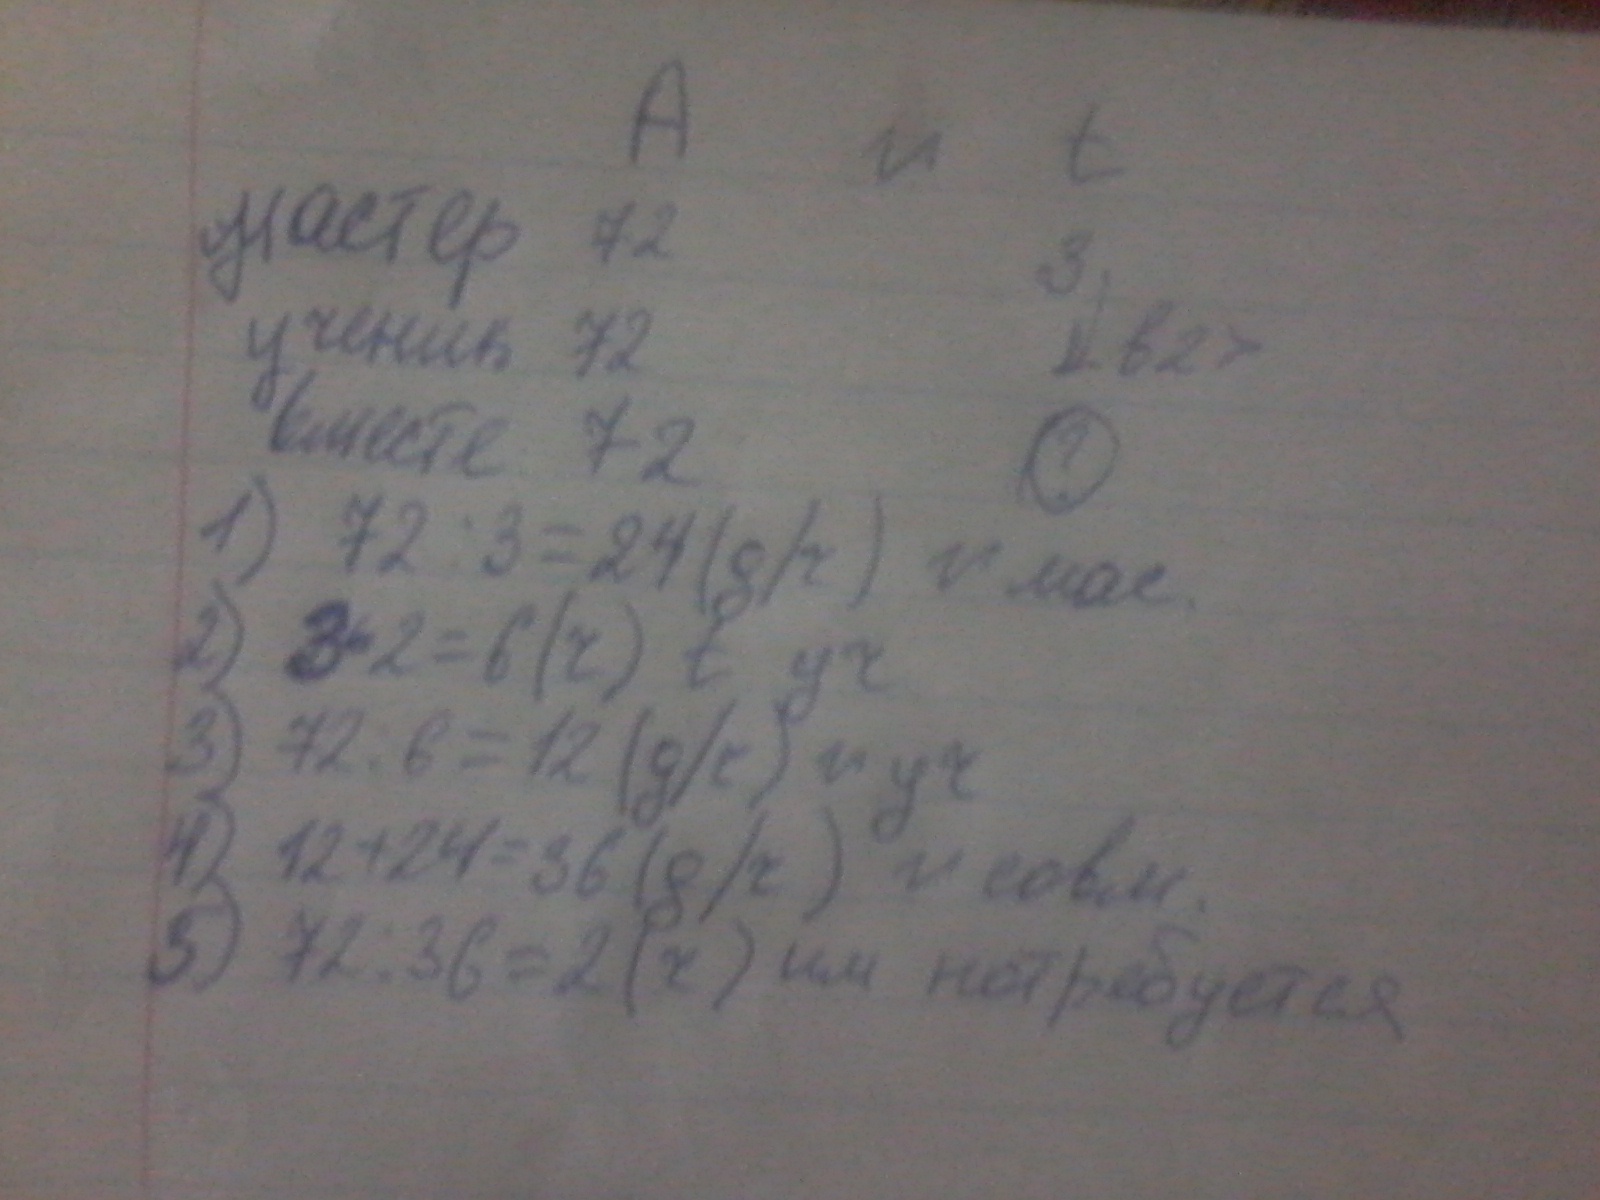 А v t
мастер 72 3
ученик 72 в 2 >
вместе 72 ?
1) 72 : 3 = 24 (д/ч) v мас.
2) 3 · 2 = 6 (ч) t уч
3) 72 : 6 = 12 (д/ч) v уч
4) 12 + 24 = 36 (д/ч) v совм.
5) 72 : 36 = 2 (ч) им потребуется